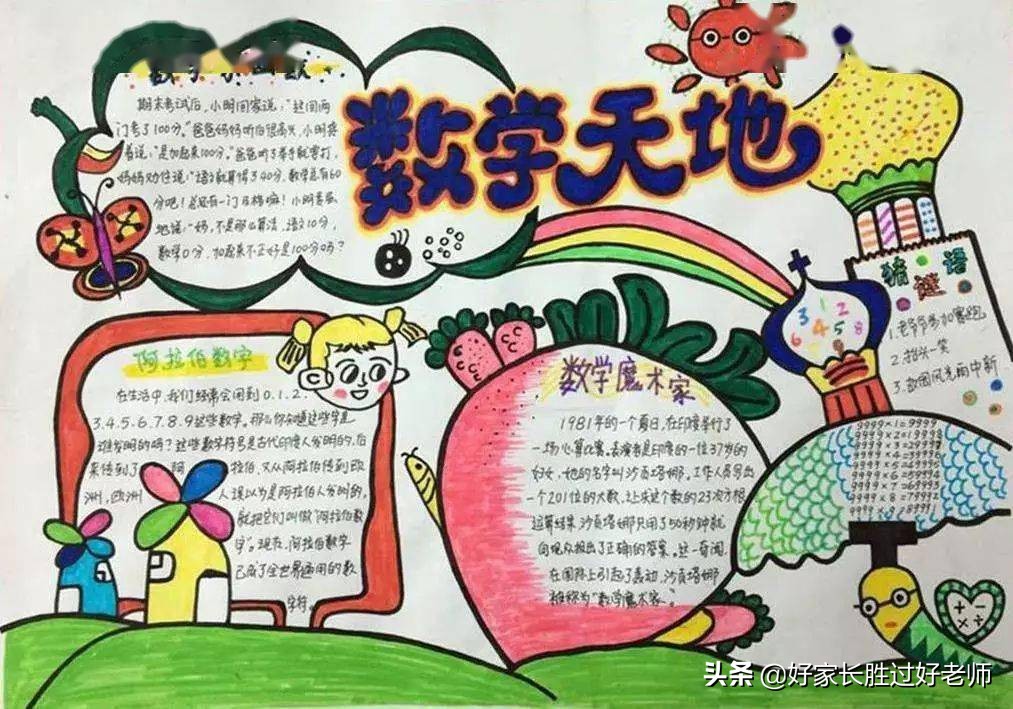 数学天地
期末考试后，小明回家说：“这回两
门考了100分。”爸爸妈妈听后很高兴，小明接
着说：“是加起来100分。”爸爸听了举手就要打，
妈妈劝住说：“语文就算得了40分，数学总有60
分吧！总还有一门及格嘛！小明委屈
地说：“妈，不是那么算法，语文10分，
数学0分，加起来不正好是100分吗？
阿拉伯数字
在生活中，我们经常会用到0.1.2.
3.4.5.6.7.8.9这些数字。那么你知道这些字是
谁发明的吗？这些数字符号是古代印度人发明的，后
来传到了阿拉伯，又从阿拉伯传到欧
洲，欧洲人误以为是阿拉伯人发明的，
就把它们叫做“阿拉伯数
字”。现在，阿拉伯数字
已成了全世界通用的数
字符。
数学魔术家
1981年的一个夏日，在印度举行了
一场心算比赛，表演者是印度的一位37岁的
妇女，她的名字叫沙贡塔娜，工作人员写出
一个201位的大数，让求这个数的23次方根
运算结果，沙贡塔娜只用了50秒钟就
向观众报出了正确的答案。这一奇闻
在国际上引起了轰动，沙贡塔娜
被称为“数学魔术家”。
猜谜语
1.老爷爷参加赛跑
2.抬头一笑
3.故国风光雨中新
3 1 2
6 4 5 8
9999×1=9999
9999×2=19998
+ - × ÷
头条 @好家长胜过好老师